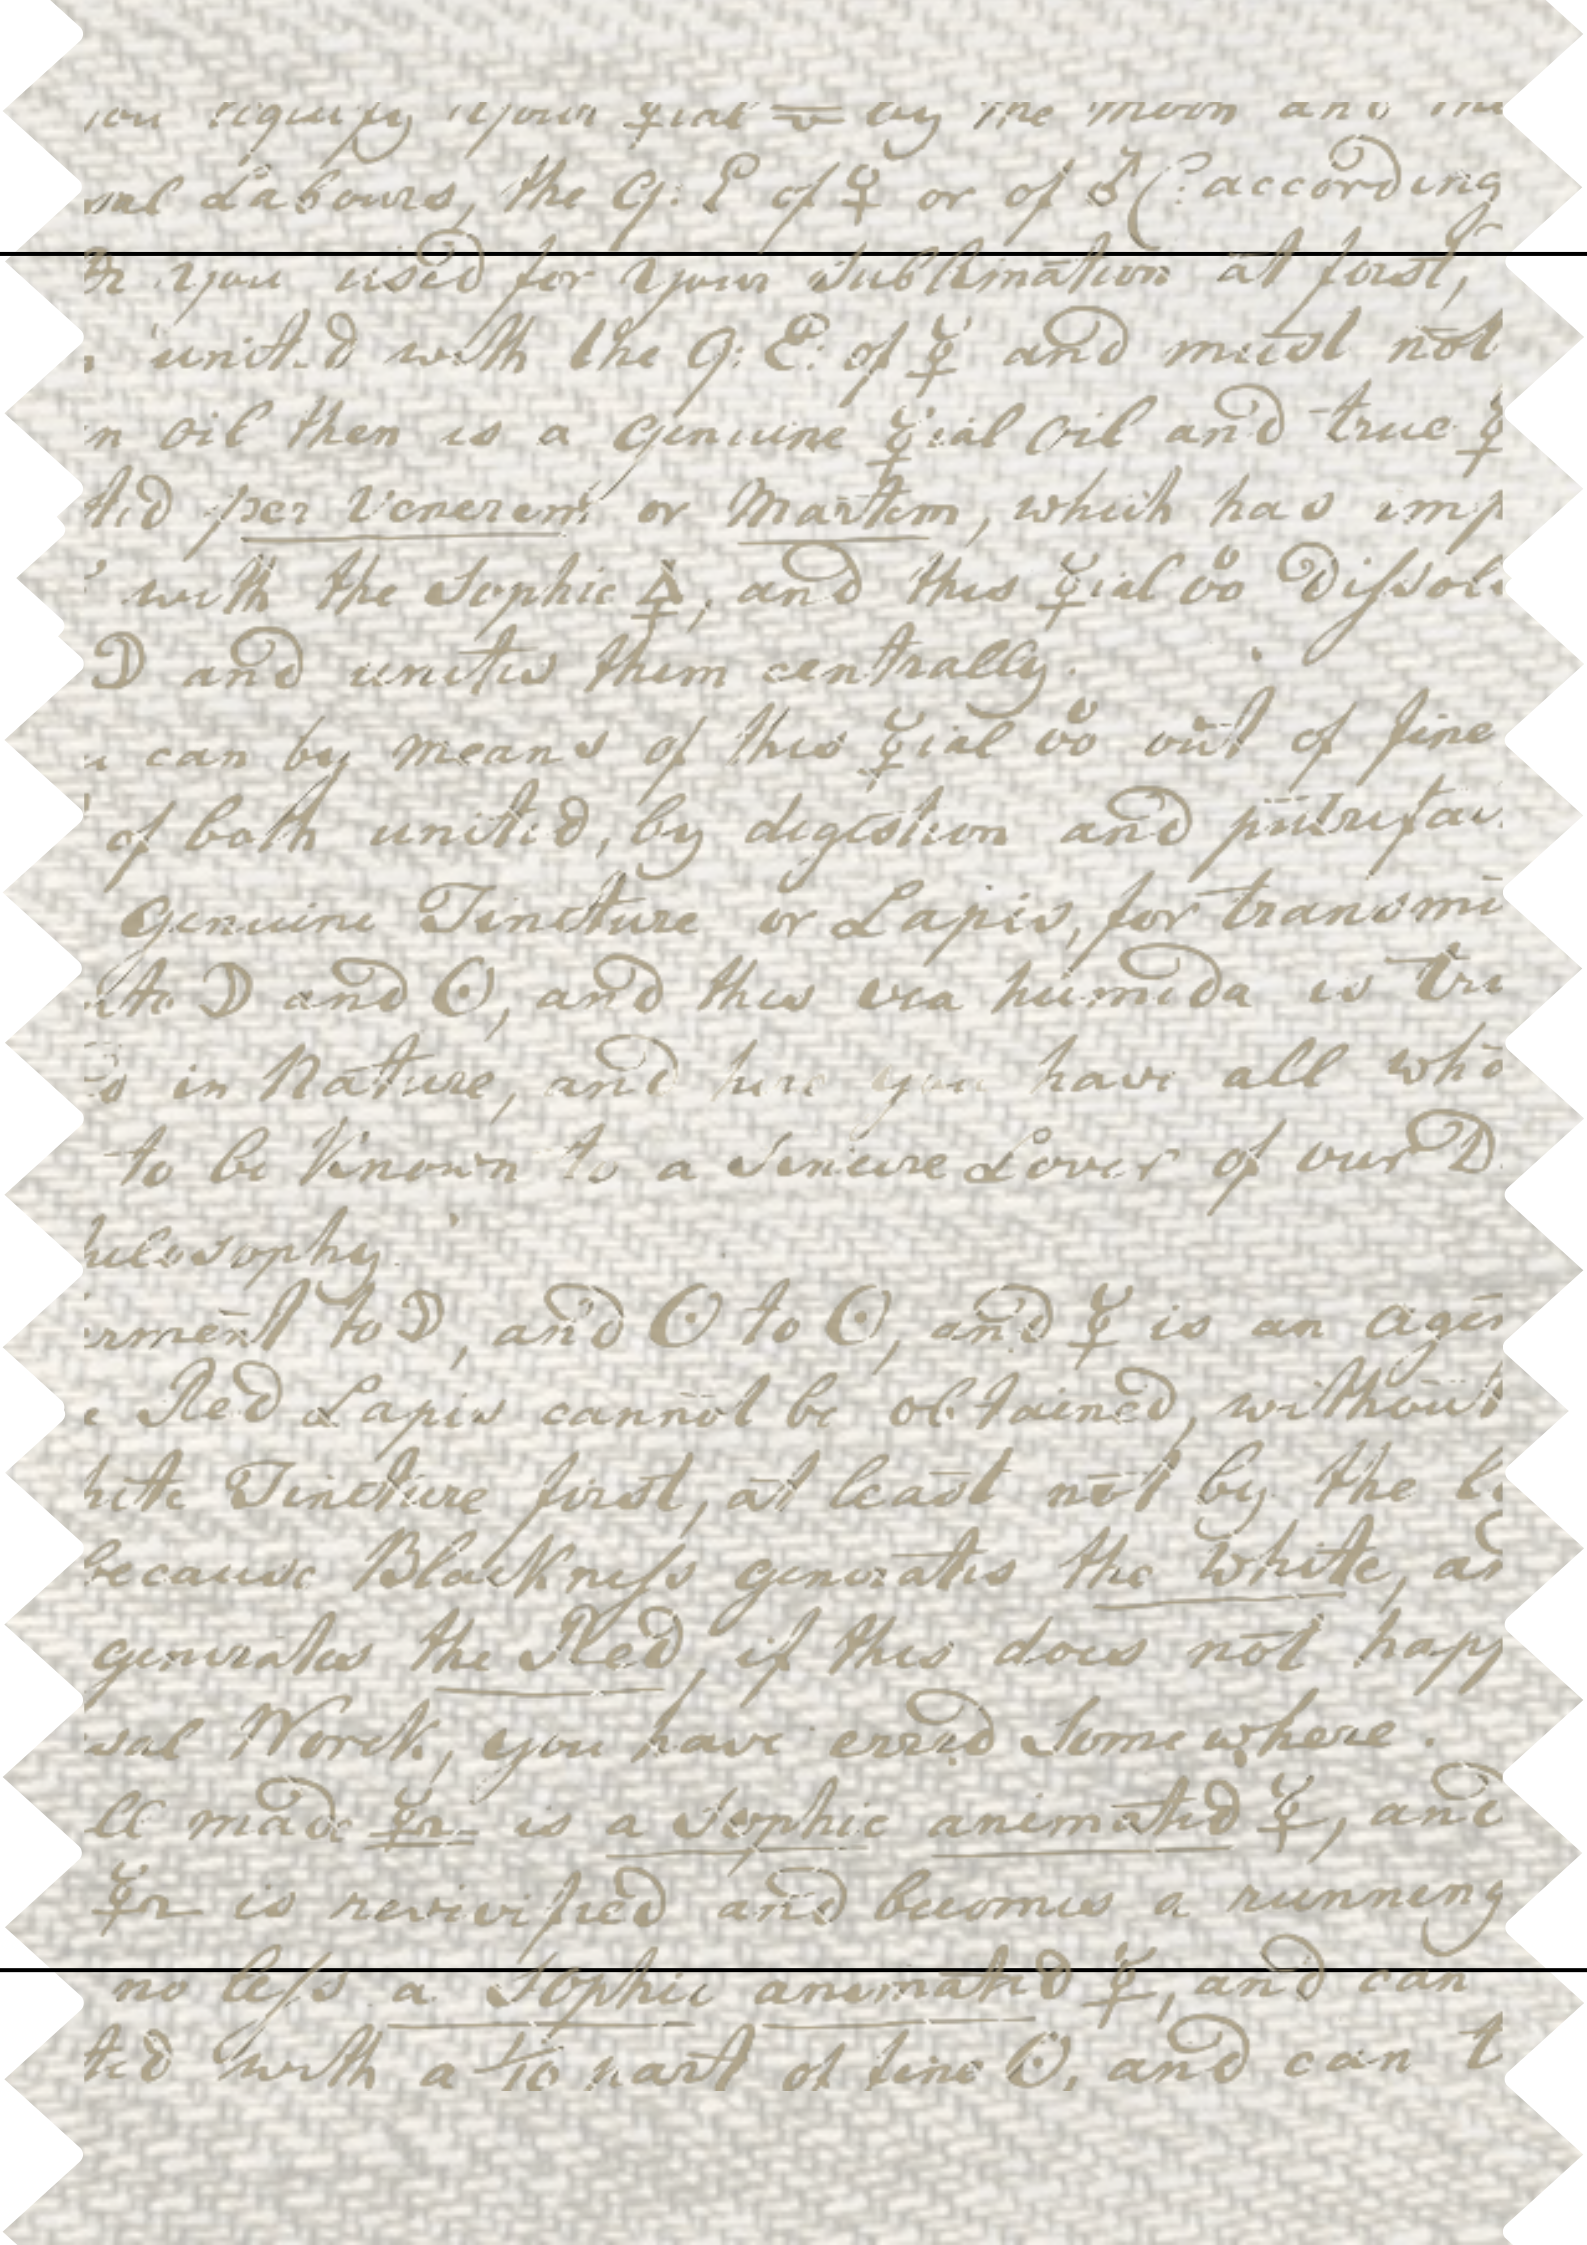 liquify your ☿ial by the moon and
Labours, the G: E of ♀ or of ♂ (: according
you used for your Sublimation at first,
united with the G: E: of ☿ and must not
oil then is a genuine ☿ial oil and true ☿
per Venerem or Martem, which has imp
with the Sophic 🜍, and this ☿ial dissol
☽ and unites them centrally.
can by means of this ☿ial out of fine
of both united, by digestion and putrefac
Genuine Tincture or Lapis, for transmu
to ☽ and ☉, and this via humida is
in Nature, and here you have all
to be Known to a Sincere Lover of our D
hilosophy.
rment to ☽, and ☉ to ☉, and ☿ is an agen
Red Lapis cannot be obtained, without
hite Tincture first, at least not by the
Because Blackness generates the White, as
generates the Red, if this does not happ
sal Worck, you have erred Somewhere.
ll made is a Sophic animated ☿, and
is revivified and becomes a running
no less a Sophic animated ☿, and can
ted with a 1/10 part of fine ☉, and can